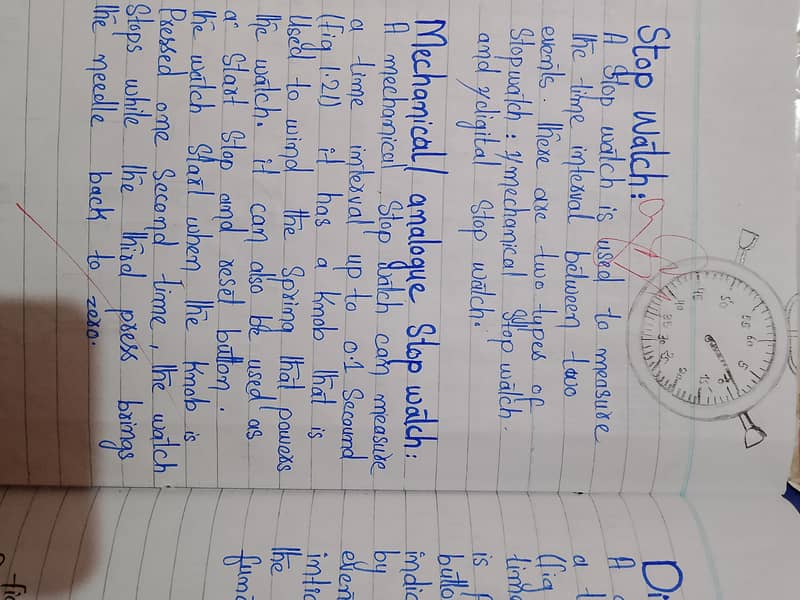 Stop Watch:
A Stop watch is used to measure
the time interval between two
events. There are two types of
Stopwatch: 1/mechanical Stop watch.
and 2/digital Stop watch.
Mechanical/analogue Stop watch:
A mechanical Stop watch can measure
a time interval up to 0.1 Secound
(fig 1.21) it has a knob that is
Used to wind the Spring that powers
the watch. it can also be used as
a Start Stop and reset button.
the watch Start when the knob is
Pressed one Second time, the watch
Stops while the third press brings
the needle back to zero.
60
5
10
15
20
25
30
35
40
45
50
55
Di
A
a t
(fig
time
is f
butto
indic
by
even
intic
the
func
fig